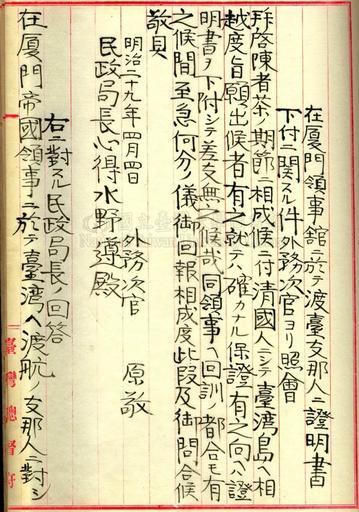 在厦門領事舘ニ於テ渡臺支那人ニ證明書
下付ニ関スル件外務次官ヨリ照會
拜啓陳者茶ノ期節ニ相成候ニ付清國人ニシテ臺湾島ヘ相
越度旨願出候者有之就テハ確カナル保證有之向ヘハ證
明書ヲ下付シテ差支無之候哉同領事ヘ回訓ノ都合モ有
之候間至急何分ノ儀御回報相成度此段及御問合候
敬具
明治二十九年四月四日 外務次官 原敬
民政局長心得水野遵殿
右ニ對スル民政局長ノ回答
在厦門帝國領事ニ於テ臺湾ヘ渡航ノ支那人ニ對シ
臺灣總督府